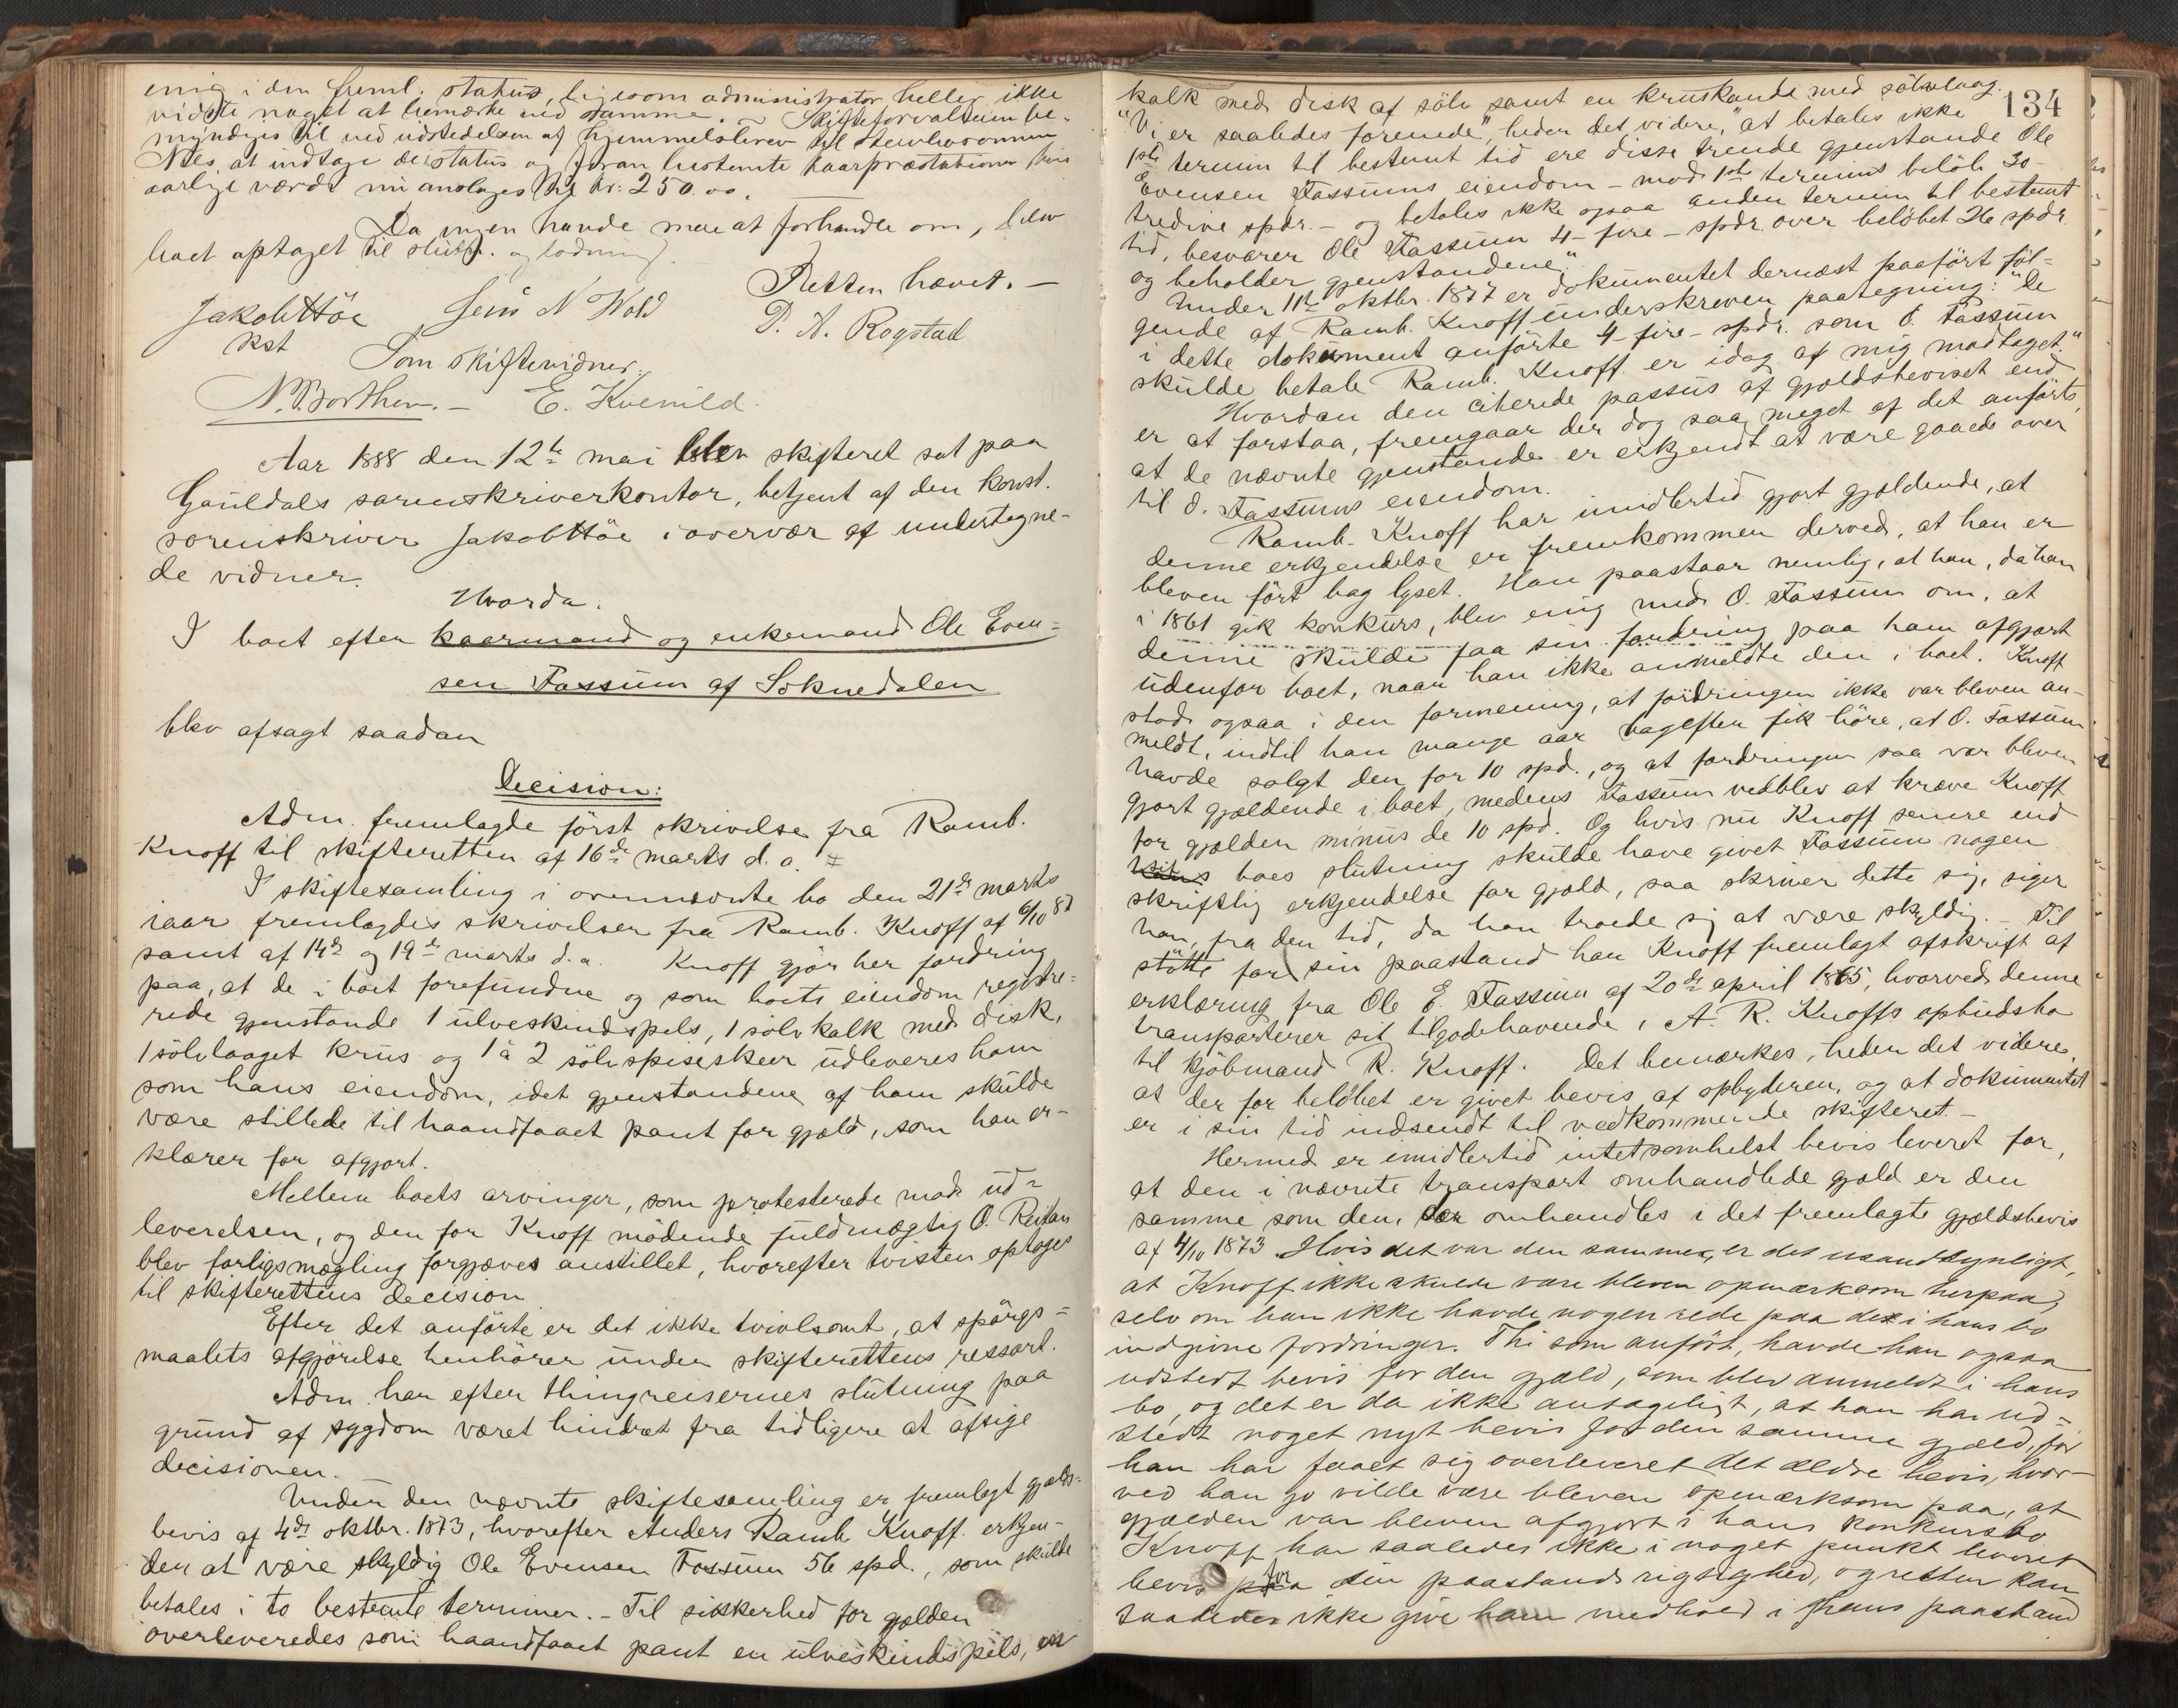 enig i den freml. status, ligesom administrator heller ikke
vidste noget at bemærke ved samme. – Skifteforvalteren be-
myndiges til ved udstedelsen af hjemmelsbrev til
Nils at indtage de i status og foran bestemte kaarpræstationer hvis
aarlige værdi nu anslages til kr: 250.00.
Da ingen havde mere at forhandle om, blev
boet optaget til slutn. og lodning.
Retten hævet. –
Jakobttöe Jens N Wold D. A. Rogstad
kst
Som skiftevidner.
N. Borthen. – E. Kvernild.
Aar 1888 den 12te mai blev skifteret sat paa
Gauldals sorenskriverkontor, betjent af den konst.
sorenskriver Jakobttöe i overvær af undertegne-
de vidner.
Hvorda:
I boet efter kaarmand og enkemand Ole Even-
sen Fossum af Soknedalen
blev afsagt saadan
Decision:
Adm. fremlagde först skrivelse fra Ramb.
Knoff til skifteretten af 16de marts d.a. #
I skiftesamling i ovennævnte bo den 21de marts
iaar fremlagdes skrivelser fra Ramb. Knoff af 6/10 87
samt af 14de og 19de marts d.a. Knoff gjör her fordring
paa, at de i boet forefundne og som boets eiendom registre-
rede gjenstande 1 ulveskindspels, 1 sölv kalk med disk,
1 sölvlaaget krus og 1 à 2 sölvspiseskeer udleveres ham
som hans eiendom, idet gjenstandene af ham skulde
være stillede til haandfaaet pant for gjæld, som han er-
klærer for afgjort.
Mellem boets arvinger, som protesterede mod ud-
leverelsen, og den for Knoff mödende fuldmægtig O. Reitan
blev forligsmægling forgjæves anstillet, hvorefter tvisten optoges
til skifterettens decision
Efter det anförte er det ikke tvivlsomt, at spörgs-
maalets afgjörelse henhörer under skifterettens ressort.
Adm. har efter thingreisernes slutning paa
grund af sygdom været hindret fra tidligere at afsige
decisionen.
Under den nævnte skiftesamling er fremlagt gjælds-
bevis af 4de oktbr. 1873, hvorefter Anders Ramb Knoff erkjen-
der at være skyldig Ole Evensen Fossum 56 spd., som skulde
betales i to bestemte terminer. – Til sikkerhed for gjælden
overleveredes som haandfaaet pant en ulveskindspels, en
134
kalk med disk af sölv samt en kruskande med sölvlaag.
"Vi er saaledes forenede", heder det videre, "at betales ikke
1ste termin til bestemt tid ere disse trende gjenstande Ole
Evensen Fassums eiendom – mod 1ste termins belöb 30 –
tredive spdr. – og betales ikke ogsaa anden termin til bestemt
tid, besvarer Ole Fassum 4 – fire – spdr. over belöbet 26 spdr.
og beholder gjenstandene."
Under 11te oktbr. 1877 er dokumentet dernæst paafört föl-
gende af Ramb. Knoff underskreven paategning: "De
i dette dokument anförte 4 – fire – spdr. som O. Fassum
skulde betale Ramb. Knoff er idag af mig modtaget."
Hvordan den citerede passus af gjældsbeviset end
er at forstaa, fremgaar der dog saa meget af det anförte,
at de nævnte gjenstande er erkjendt at være gaaede over
til O. Fassums eiendom.
Ramb. Knoff har imidlertid gjort gjældende, at
denne erkjendelse er fremkommen derved, at han er
bleven fört bag lyset. Han paastaar nemlig, at han, da han
i 1861 gik konkurs, blev enig med O. Fassum om, at
denne skulde faa sin fordring paa ham afgjort
udenfor boet, naar han ikke anmeldte den i boet. Knoff
stod ogsaa i den formening, at fordringen ikke var bleven an-
meldt, indtil han mange aar bagefter fik höre, at O. Fassum
havde solgt den for 10 spd., og at fordringen saa var bleven
gjort gjældende i boet, medens Fassum vedblev at kræve Knoff
for gjælden minus de 10 spd. Og hvis nu Knoff senere end
hans boes slutning skulde have givet Fassum nogen
skriftlig erkjendelse for gjæld, saa skriver dette sig, siger
han, fra den tid, da han troede sig at være skyldig. – Til
stötte for sin paastand har Knoff fremlagt afskrift af
erklæring fra Ole E. Fassum af 20de april 1865, hvorved denne
transporterer sit tilgodehavende i A. R. Knoffs opbudsbo
til kjöbmand R. Knoff. Det bemærkes, heder det videre,
at der for belöbet er givet bevis af opbyderen, og at dokumentet
er i sin tid indsendt til vedkommende skifteret. –
Hermed er imidlertid intetsomhelst bevis leveret for,
at den i nævnte transport omhandlede gjæld er den
samme som den, der omhandles i det fremlagte gjældsbevis
af 4/10 1873. Hvis det var den samme, er det usandsynligt,
at Knoff ikke skulde være bleven opmærksom herpaa,
selv om han ikke havde nogen rede paa de i hans bo
indgivne fordringer. Thi som anfört, havde han ogsaa
udstedt bevis for den gjæld, som blev anmeldt i hans
bo, og det er da ikke antageligt, at han har ud-
stedt noget nyt bevis for den samme gjæld, för
han har faaet sig overleveret det ældre bevis, hvor-
ved han jo vilde være bleven opmærksom paa, at
gjælden var bleven afgjort i hans konkursbo
Knoff har saaledes ikke i noget punkt leveret
bevis for sin paastands rigtighed, og retten kan
saaledes ikke give ham medhold i hans paastand